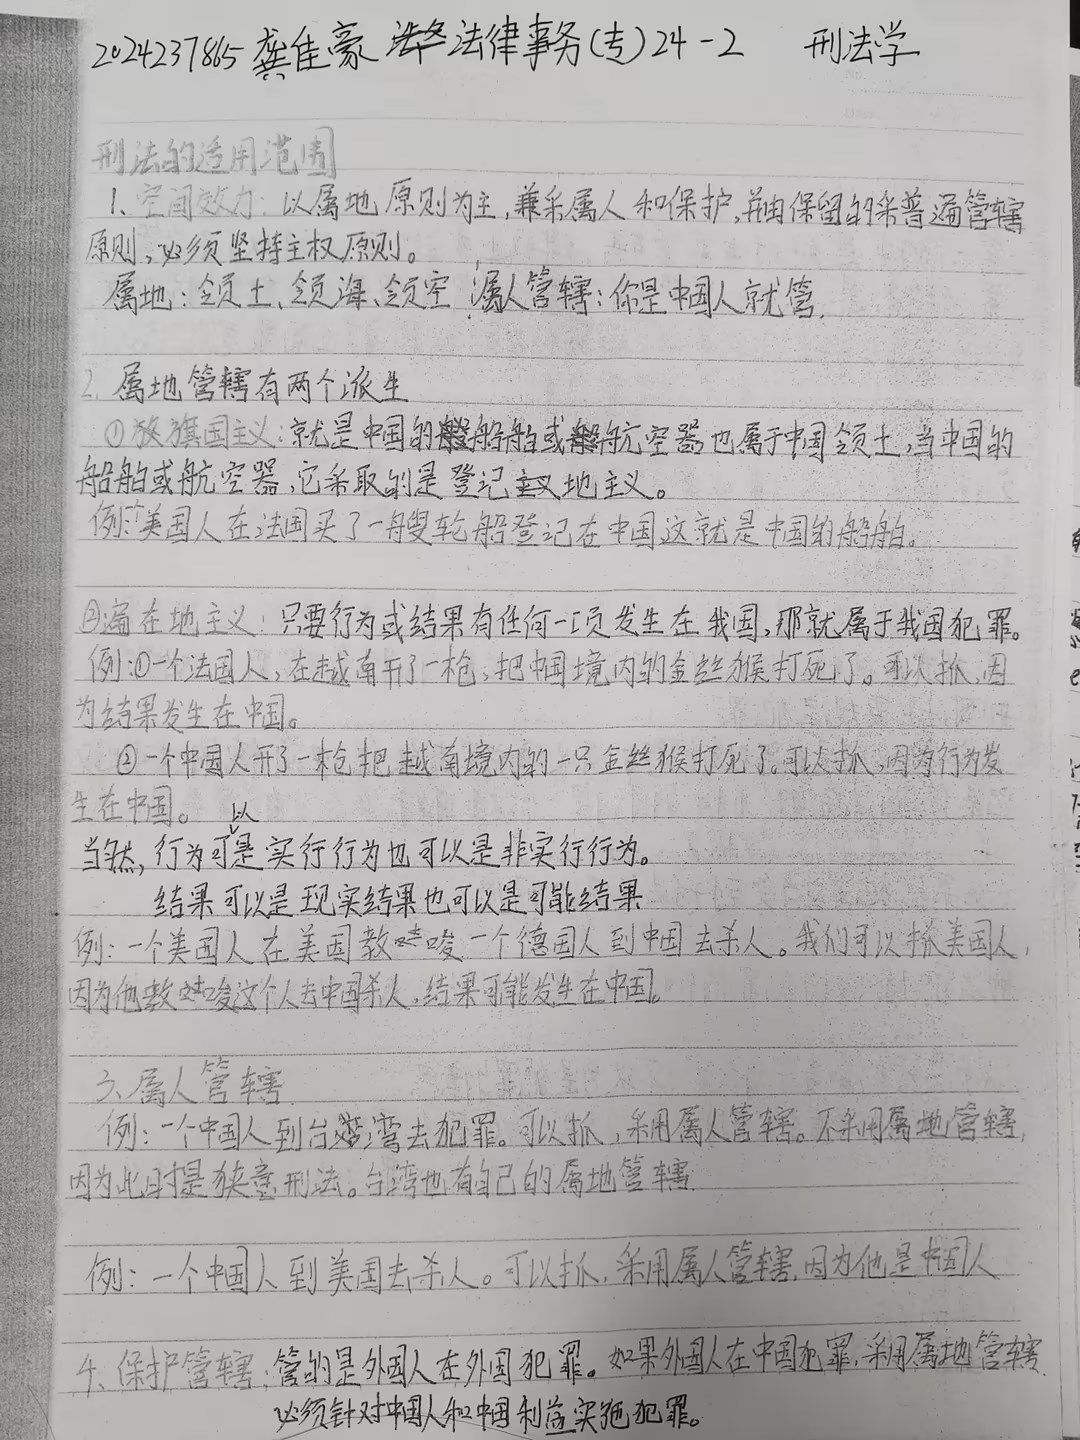 2024237865 龚佳豪 法律事务(专)24-2 刑法学
刑法的适用范围
1、空间效力：以属地原则为主，兼采属人和保护，并由保留的采普遍管辖
原则，必须坚持主权原则。
属地：领土、领海、领空；属人管辖：你是中国人就管。
2. 属地管辖有两个派生
①旗国主义：就是中国的船舶或航空器也属于中国领土，当中国的
船舶或航空器，它采取的是登记地主义。
例：美国人在法国买了一艘轮船登记在中国这就是中国的船舶。
②遍在地主义：只要行为或结果有任何一项发生在我国，那就属于我国犯罪。
例：①一个法国人，在越南开了一枪，把中国境内的金丝猴打死了。可以抓，因
为结果发生在中国。
②一个中国人开了一枪把越南境内的一只金丝猴打死了。可以抓，因为行为发
生在中国。
当然，行为可以是实行行为也可以是非实行行为。
结果可以是现实结果也可以是可能结果
例：一个美国人在美国教唆一个德国人到中国去杀人。我们可以抓美国人，
因为他教唆这个人去中国杀人，结果可能发生在中国。
3、属人管辖
例：一个中国人到台湾去犯罪。可以抓，采用属人管辖。不采用属地管辖，
因为此时是狭意刑法。台湾也有自己的属地管辖
例：一个中国人到美国去杀人。可以抓，采用属人管辖，因为他是中国人
4、保护管辖：管的是外国人在外国犯罪。如果外国人在中国犯罪，采用属地管辖
必须针对中国人和中国利益实施犯罪。